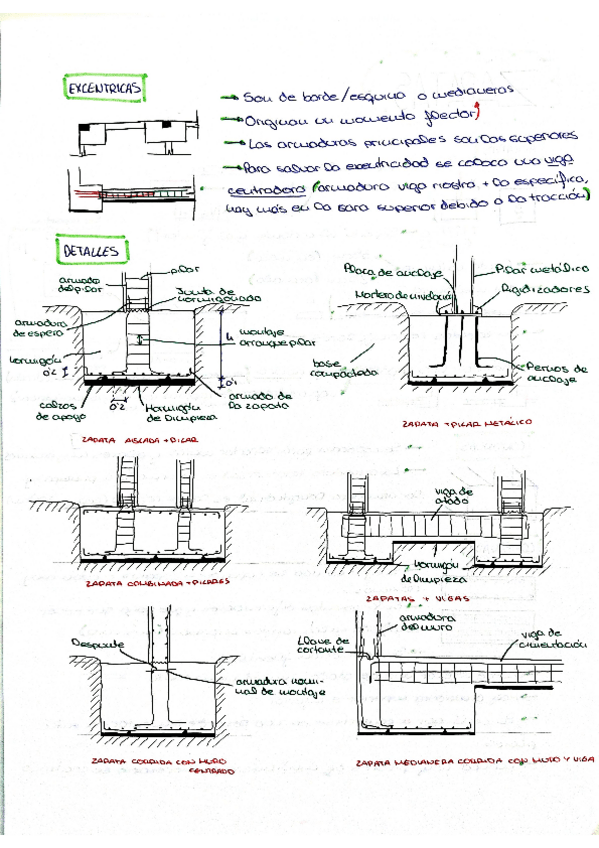 EXCENTRICAS
→ Son de borde/esquina o medianeras
→ Originan un momento flector
→ Las armaduras principales son las superiores
→ Para salvar la excentricidad se coloca una viga
centradora (armadura viga riostra + la específica,
hay más en la cara superior debido a la tracción)
DETALLES
armado
del pilar
pilar
Junta de
hormigonado
armadura
de espera
hormigón
0'2
h
montaje
arranque pilar
0'1
calzos
de apoyo
0'2
Hormigón
de limpieza
armado de
la zapata
ZAPATA AISLADA + PILAR
Placa de anclaje
Pilar metálico
Mortero de nivelación
Rigidizadores
base
compactada
Pernos de
anclaje
ZAPATA + PILAR METÁLICO
ZAPATA COMBINADA + PILARES
viga de
atado
Hormigón
de limpieza
ZAPATAS + VIGAS
Despunte
armadura nomi-
nal de montaje
ZAPATA CORRIDA CON MURO
CENTRADO
Llave de
cortante
armadura
del muro
viga de
cimentación
ZAPATA MEDIANERA CORRIDA CON MURO Y VIGA